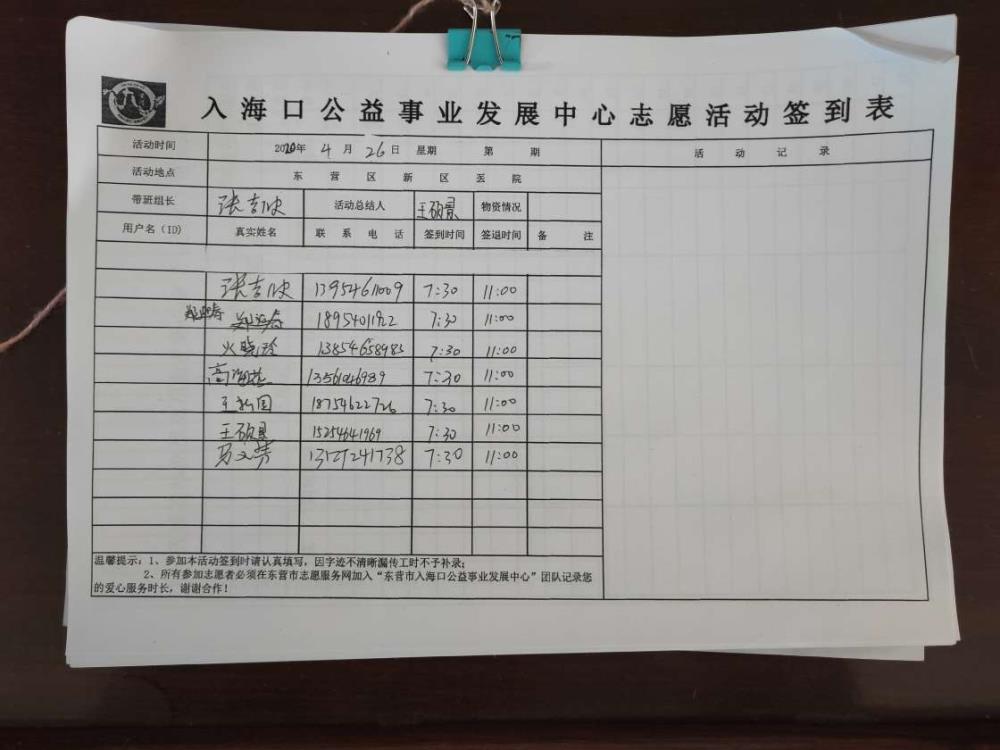 入海口公益事业发展中心志愿活动签到表
活动时间 2020年 4 月 26 日 星期 第 期 活动记录
活动地点 东营区新区医院
带班组长 张吉 活动总结人 王砚景 物资情况
用户名(ID) 真实姓名 联系电话 签到时间 签退时间 备注
张吉 13954611009 7:30 11:00
18954011922 7:30 11:00
火晓玲 13854658983 7:30 11:00
高 13561046989 7:30 11:00
王 18754622726 7:30 11:00
王砚景 15254641969 7:30 11:00
马文 7:30 11:00
温馨提示:1、参加本活动签到时请认真填写,因字迹不清晰漏传工时不予补录;
2、所有参加志愿者必须在东营市志愿服务网加入“东营市入海口公益事业发展中心”团队记录您
的爱心服务时长,谢谢合作!